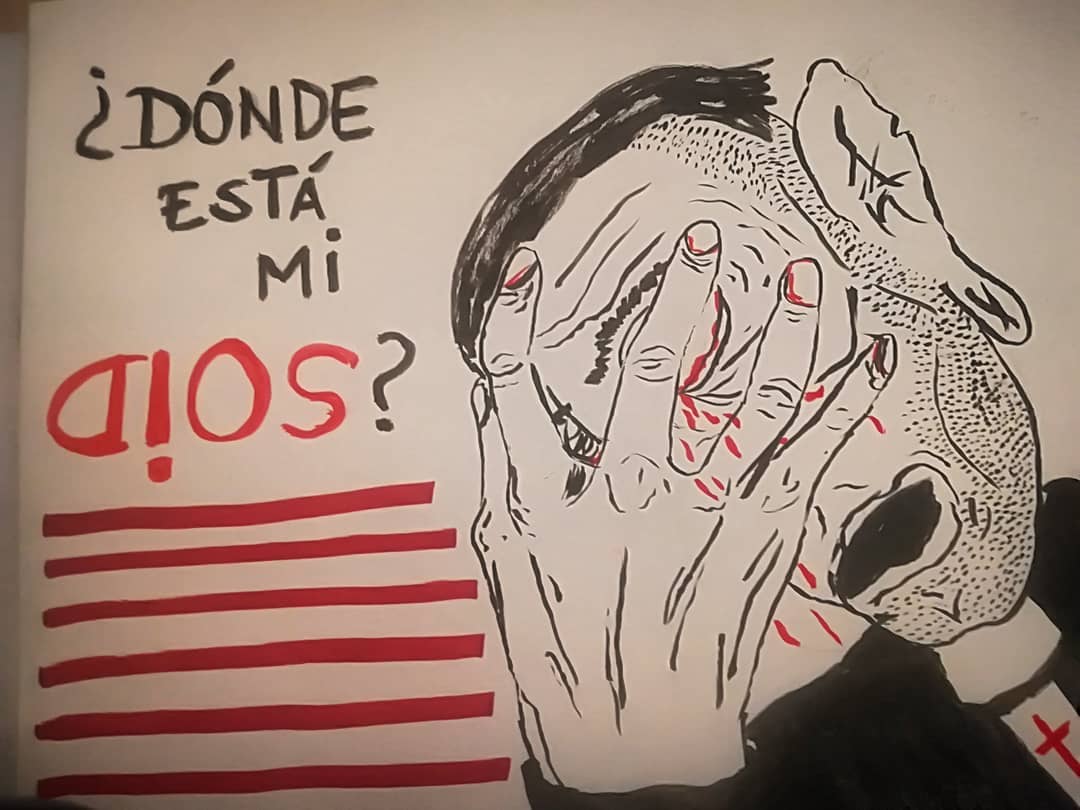 ¿DÓNDE
ESTÁ
Mi
DiOS?